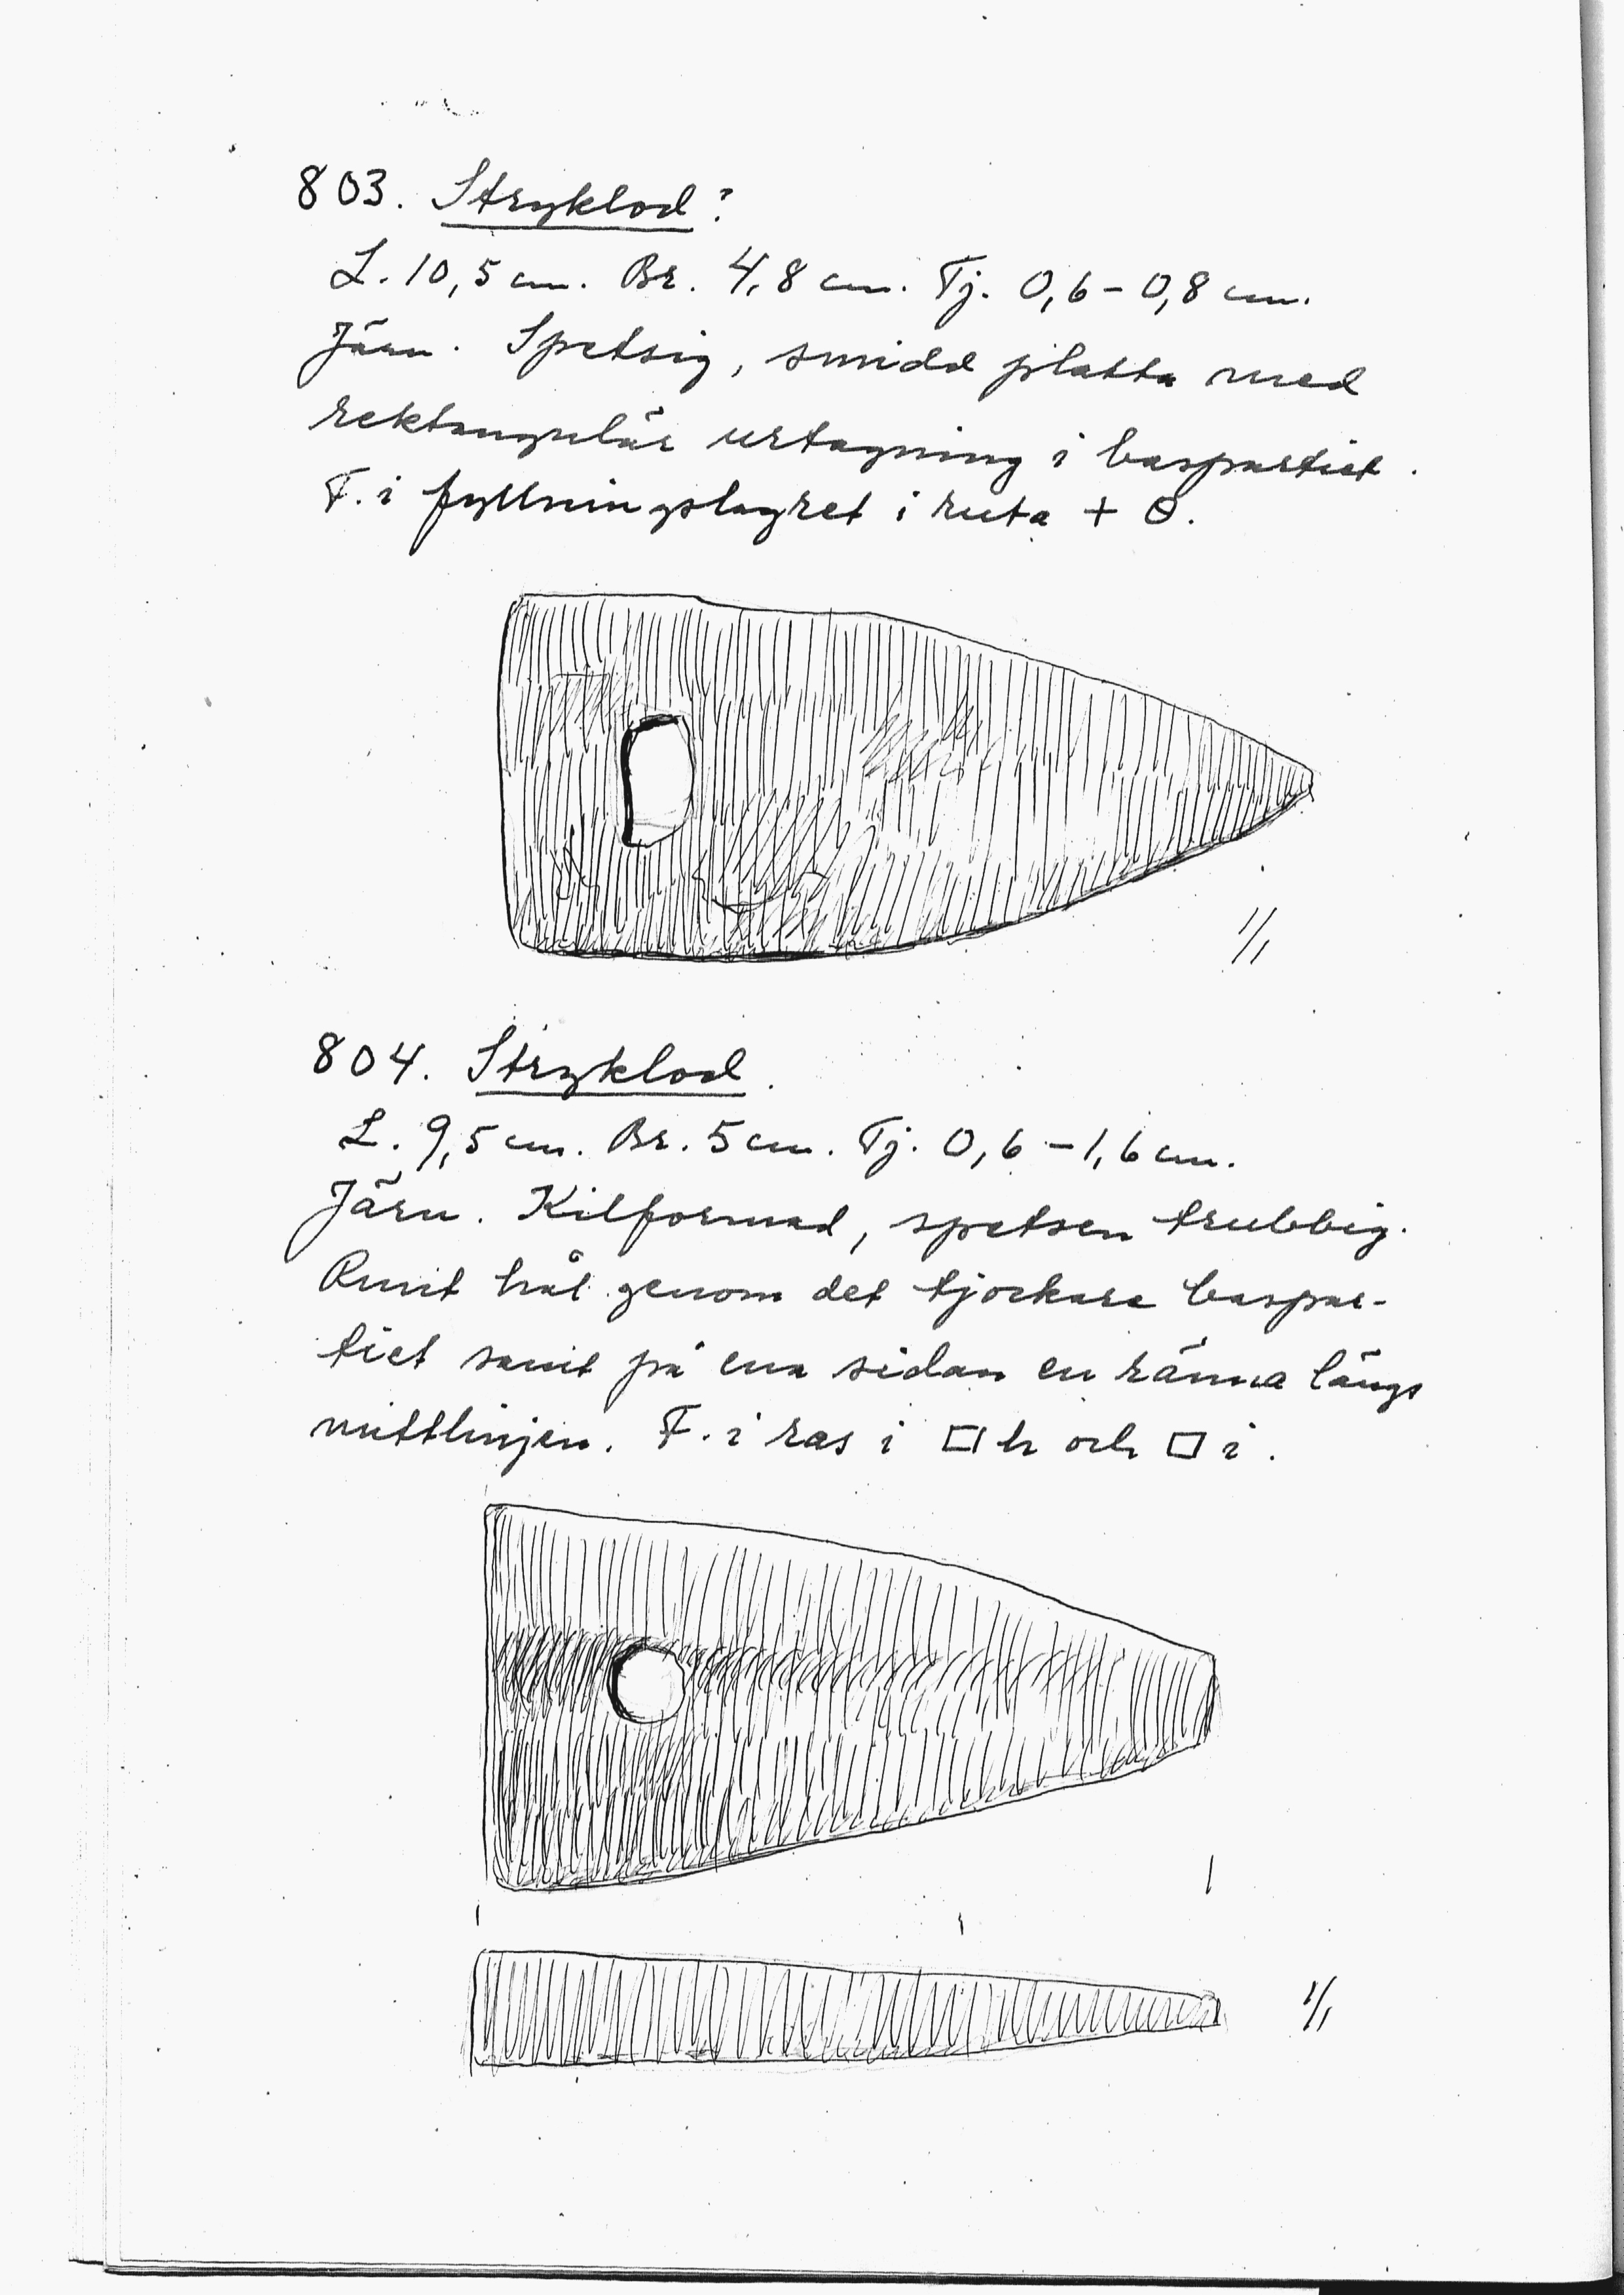 803. Stryklod?
L. 10,5 cm. Br. 4,8 cm. Tj. 0,6 – 0,8 cm.
Järn. Spetsig, smidd platta med
rektangulär urtagning i baspartiet.
F. i fyllningslagret i ruta + Θ.
1/1
804. Stryklod.
L. 9,5 cm. Br. 5 cm. Tj. 0,6 – 1,6 cm.
Järn. Kilformad, spetsen trubbig.
Runt hål genom det tjockare baspar-
tiet samt på ena sidan en ränna längs
mittlinjen. F. i ras i □ h och □ i.
1/1